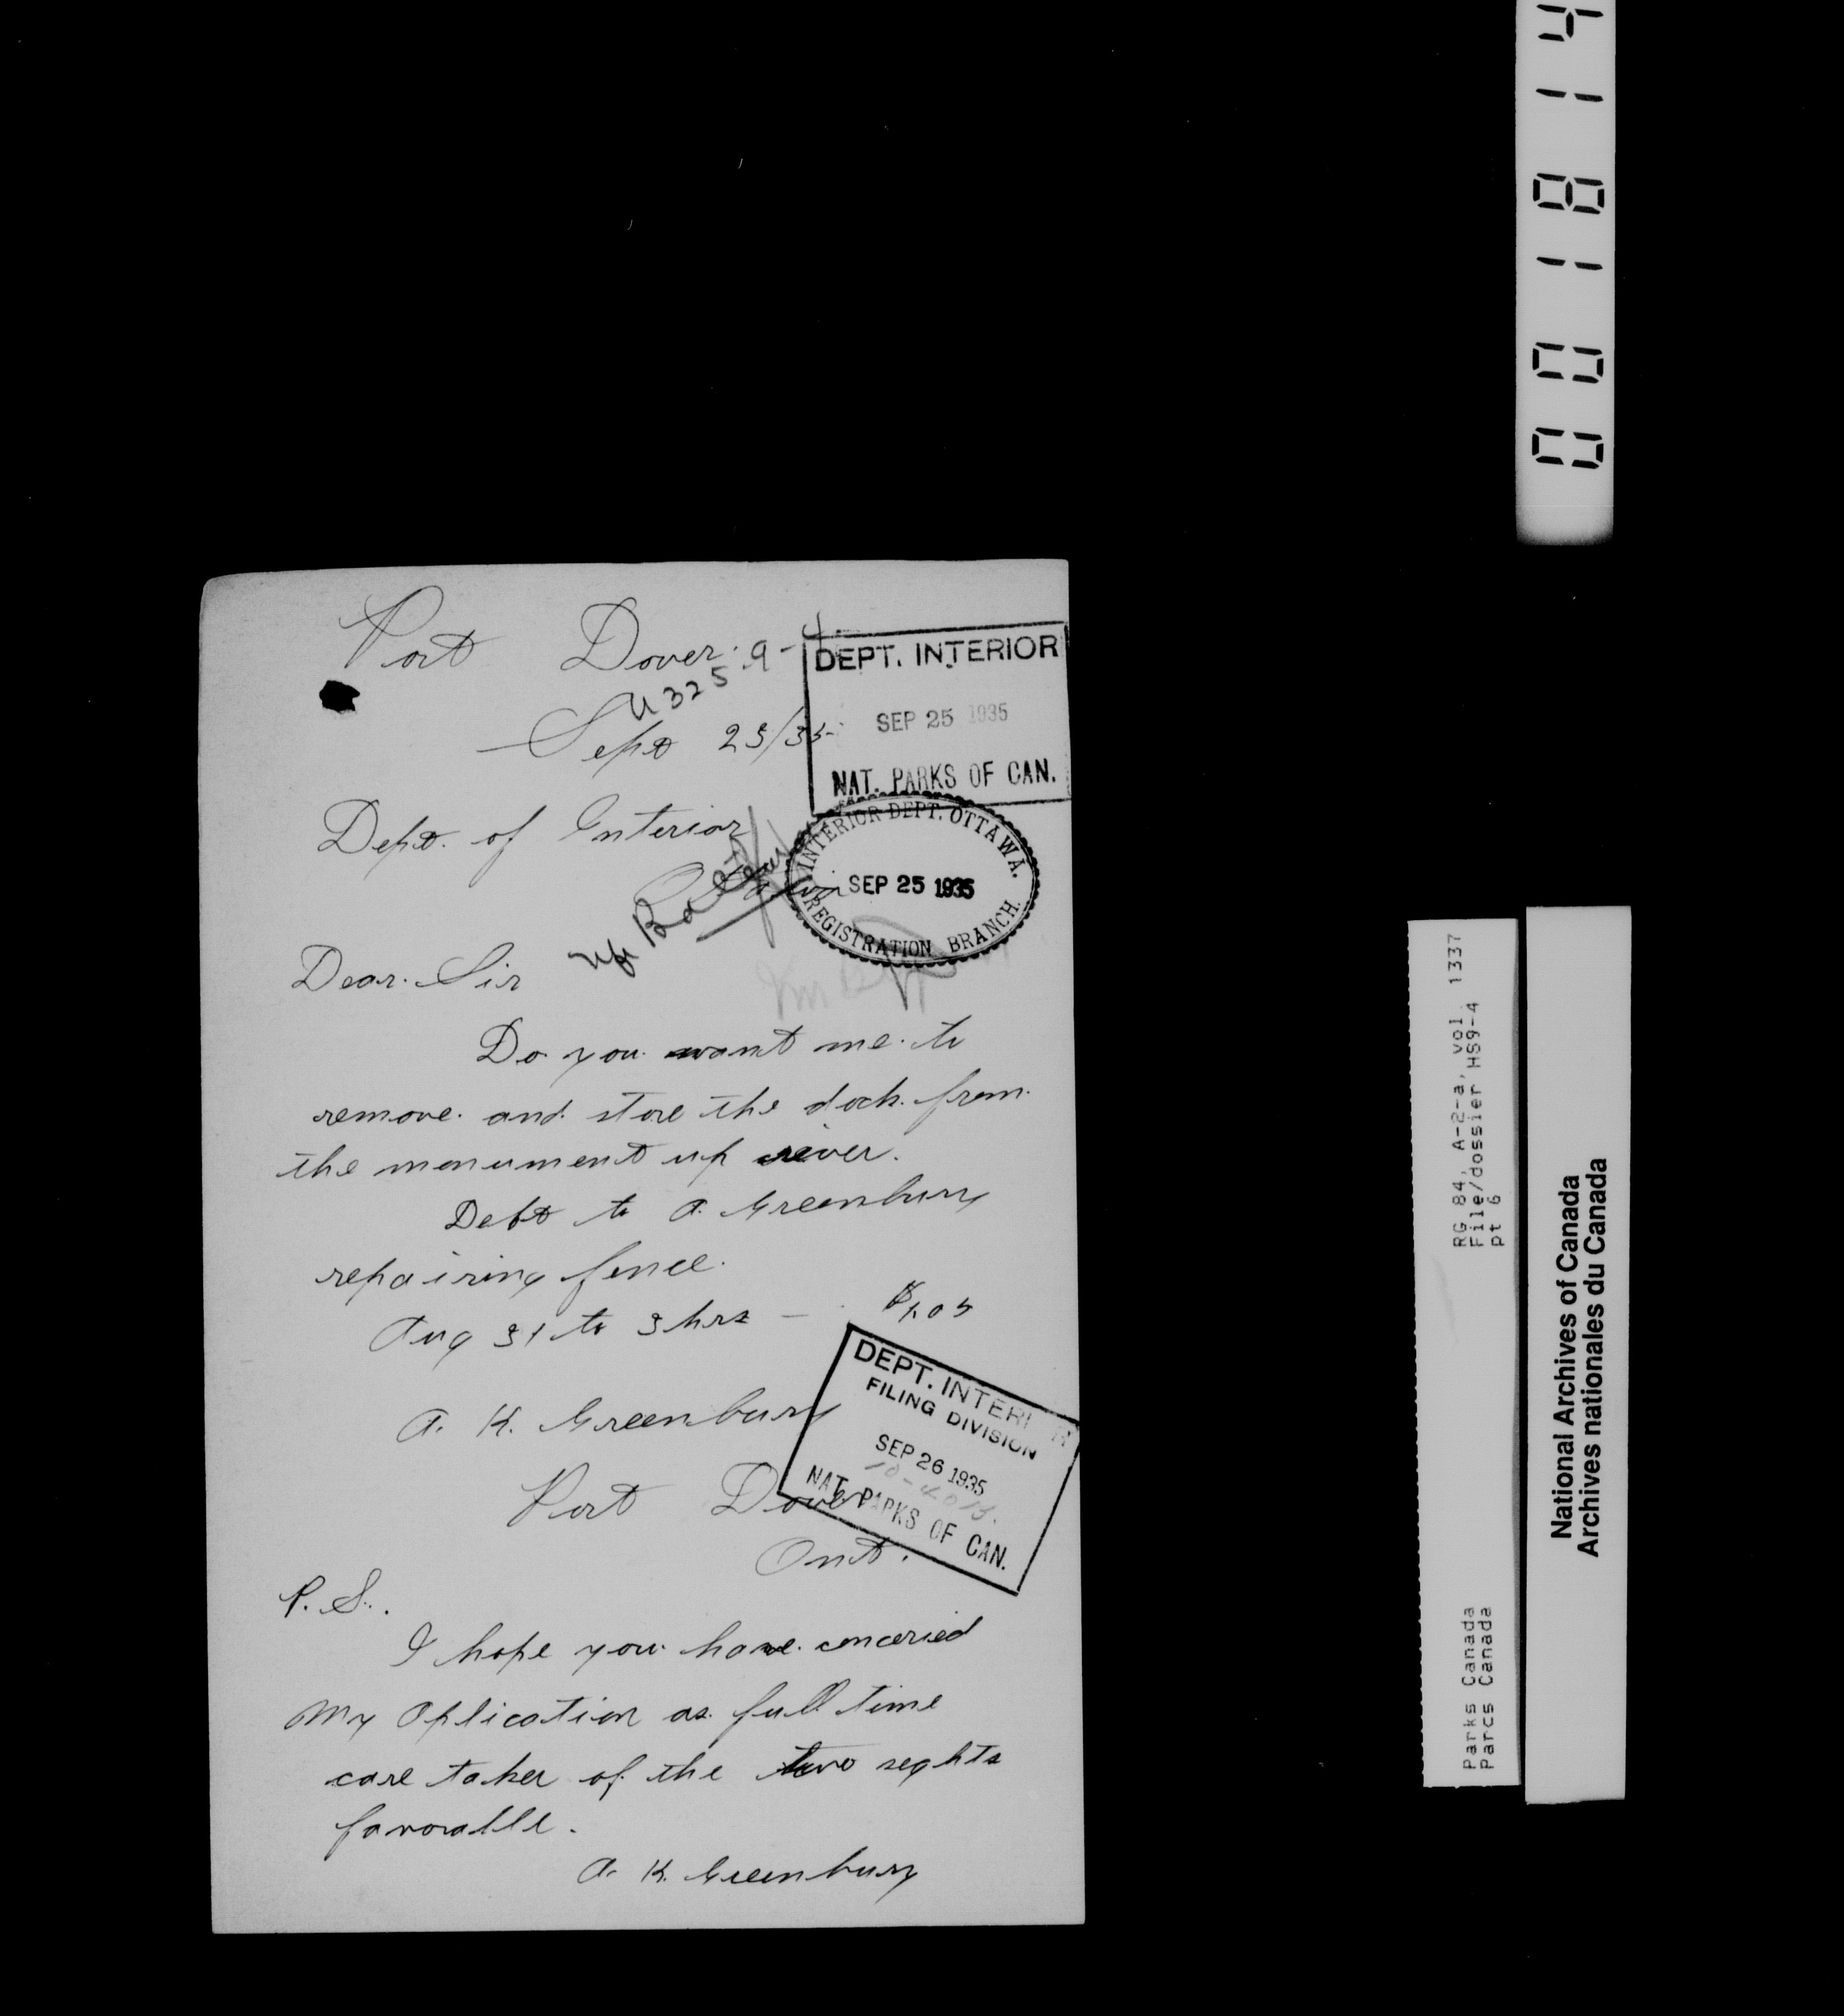 Port Dover.
U325-9-4.
Sept 25/35
DEPT. INTERIOR
SEP 25 1935
NAT. PARKS OF CAN.
Dept. of Interior
INTERIOR DEPT. OTTAWA.
SEP 25 1935
REGISTRATION BRANCH.
Dear. Sir
Do you want me to
remove and store the dock from
the monument up river.
Debt to A. Greenbury
repairing fence.
Aug 31 to 3 hrs — $1.05
A. K. Greenbury
Port Dover
Ont.
DEPT. INTERIOR
FILING DIVISION
SEP 26 1935
NAT. PARKS OF CAN.
P.S.
I hope you have
My Aplication as full time
care taker of the two seghts
favorable.
A. K. Greenbury
0 0 1 8 1 4
RG 84, A-2-a, vol. 1337
File/dossier HS9-4
pt 6
Parks Canada
Parcs Canada
National Archives of Canada
Archives nationales du Canada